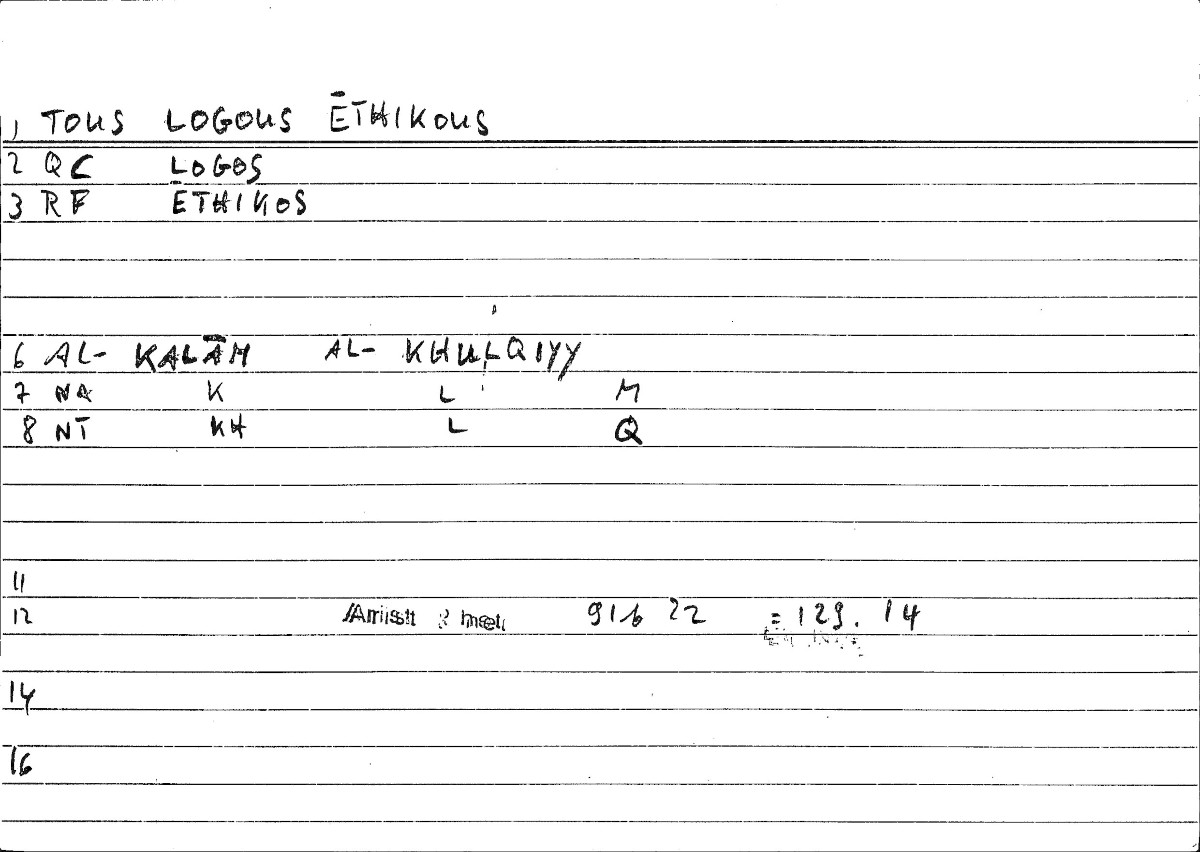 1 TOUS LOGOUS ĒTHIKOUS
2 QC LOGOS
3 RF ĒTHIKOS
6 AL- KALĀM AL- KHULQIYY
7 NA K L M
8 NT KH L Q
11
12 Arist met 916 22 = 129. 14
14
16